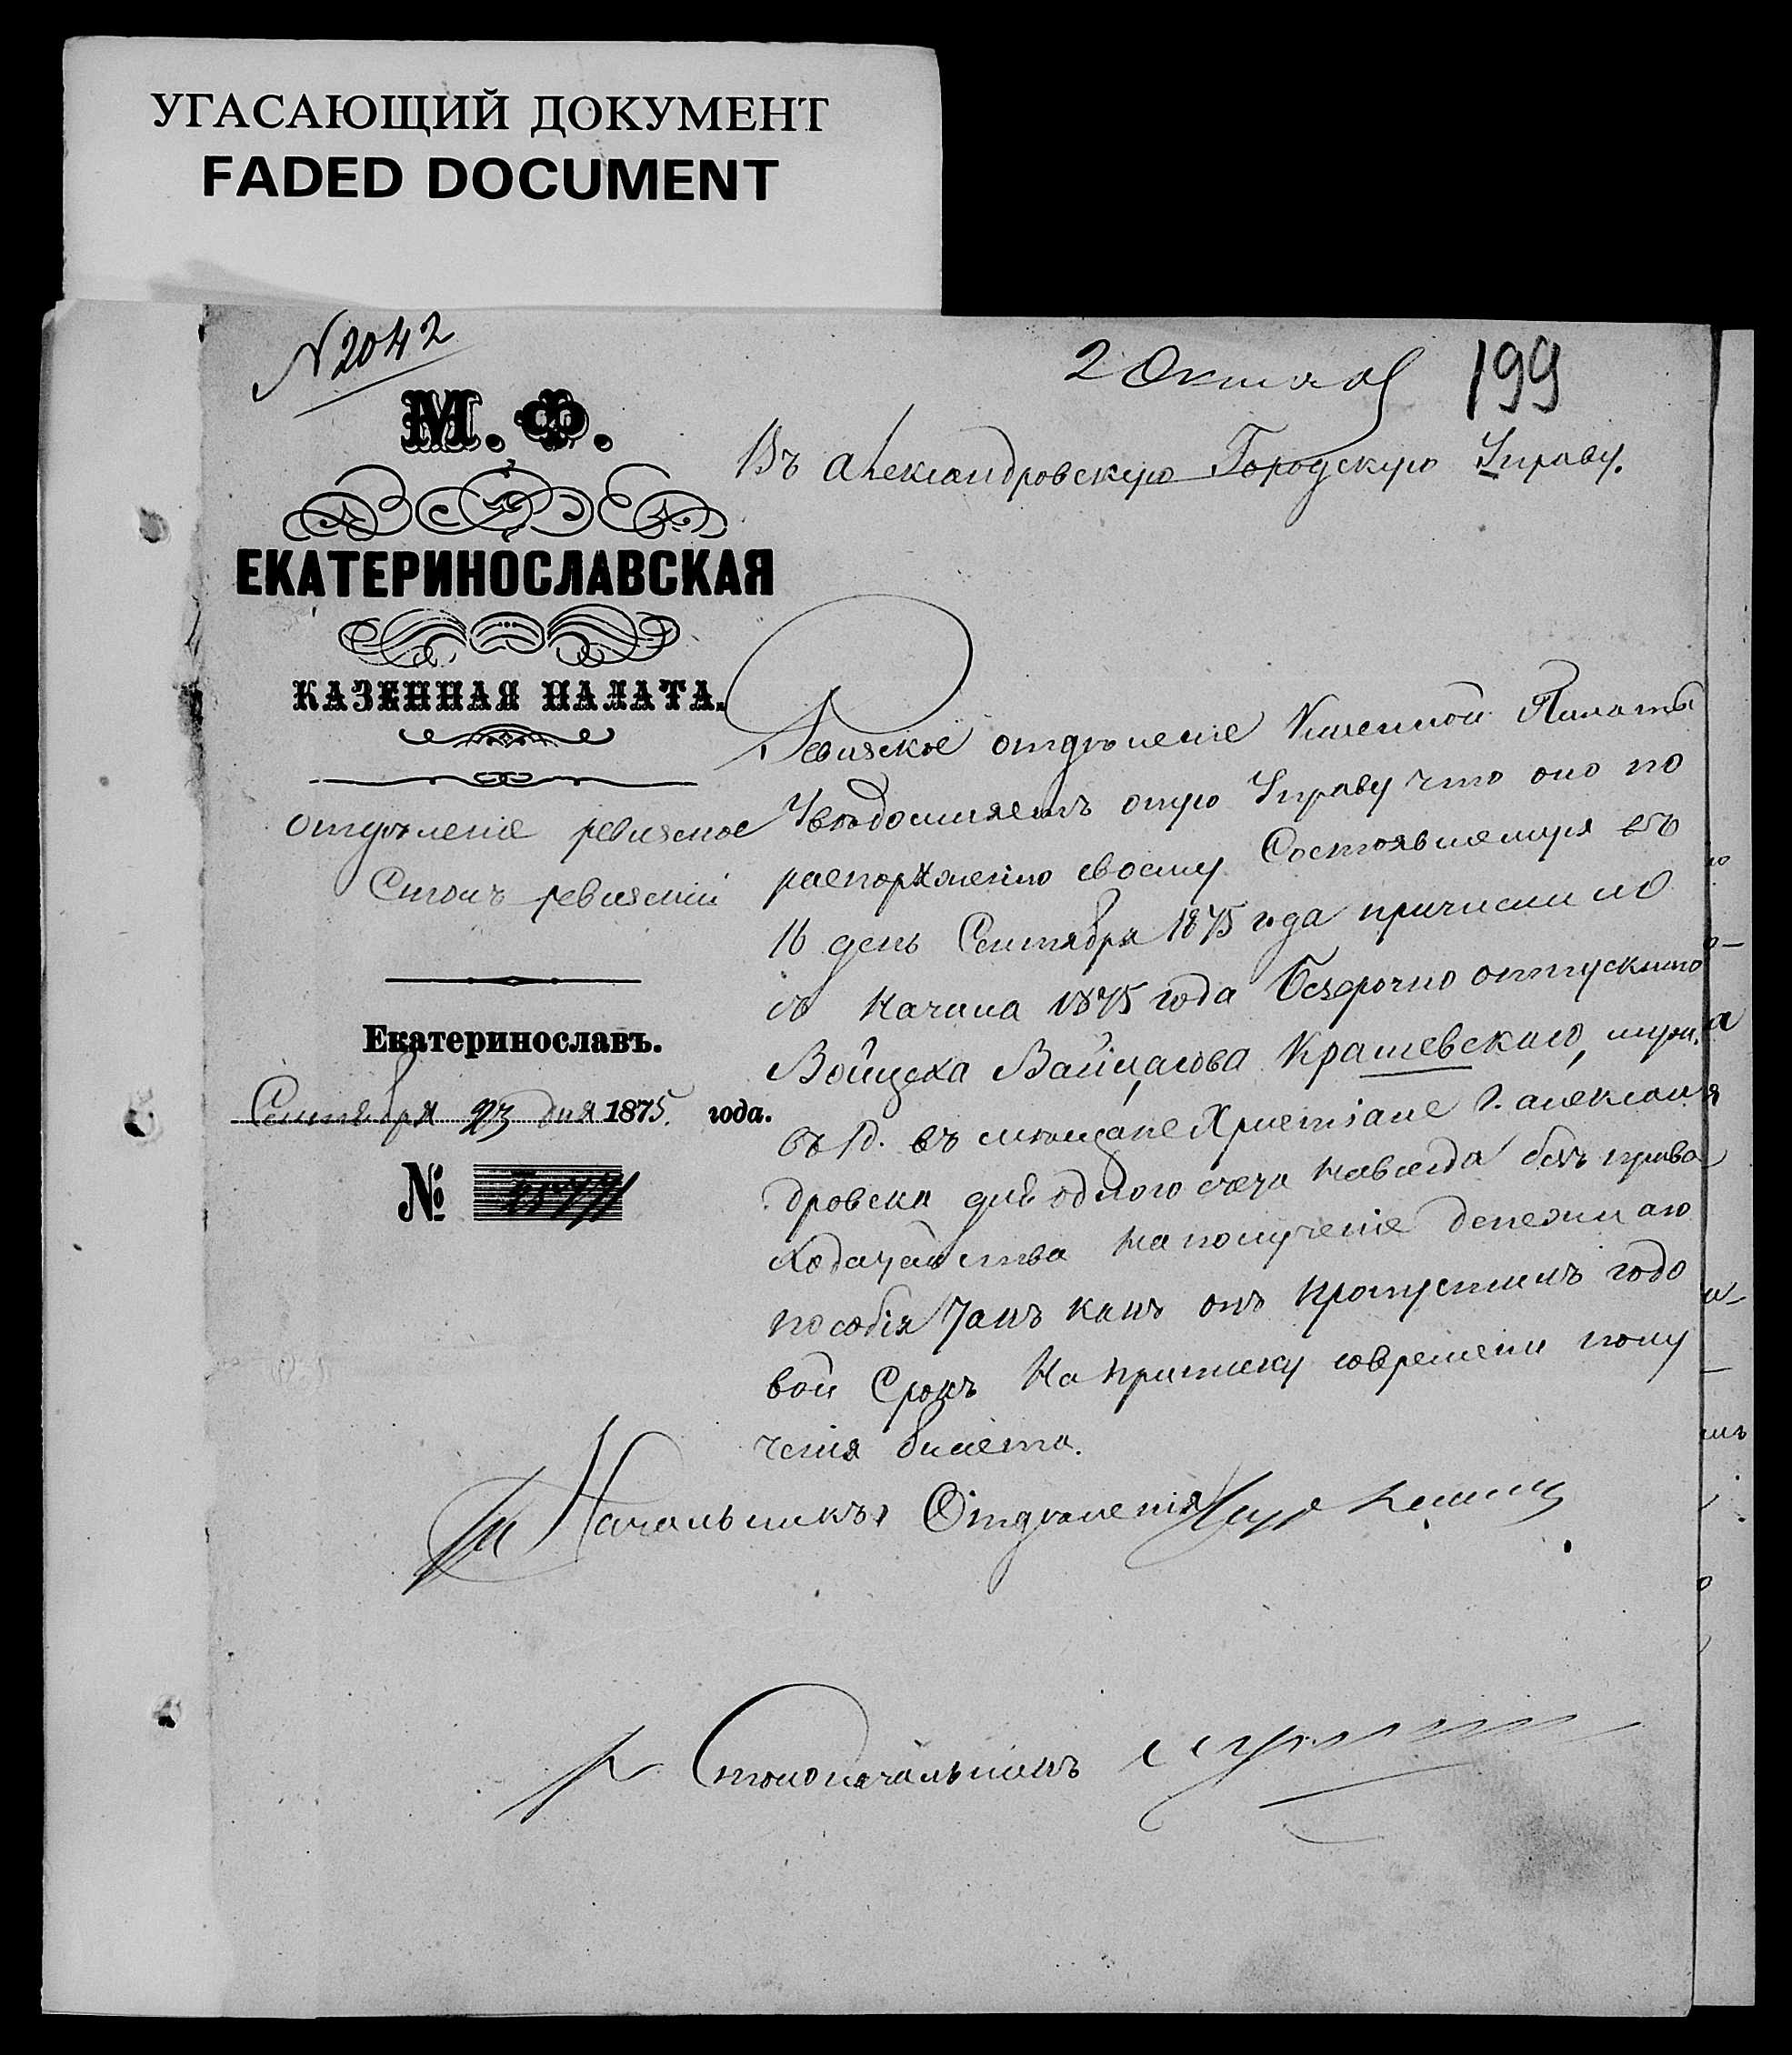 УГАСАЮЩИЙ ДОКУМЕНТ
FADED DOCUMENT
N 2042
2 Октяб
199
М. Ф.
ЕКАТЕРИНОСЛАВСКАЯ
КАЗЕННАЯ ПАЛАТА.
Отдѣленіе ревизское
Столъ ревизскій
Екатеринославъ.
Сентября 23 дня 1875. года.
№
Въ Александровскую Городскую Управу.
Ревизское отдѣленіе Казенной Палаты
Увѣдомляетъ оную Управу что оно по
распоряженію своему Состоявшемуся въ
16 день Сентября 1875 года причислило
съ Начала 1875 года Безсрочно отпускного
Войцеха Крашевскаго, муж.
въ мѣщане Христіане г. Алексан
дровска для одного счета навсегда безъ права
Ходатайства На полученіе денежнаго
пособія Такъ какъ онъ пропустилъ годо
вой Срокъ На приписку современи полу
ченія билета.
Начальникъ Отдѣленія
Столоначальникъ